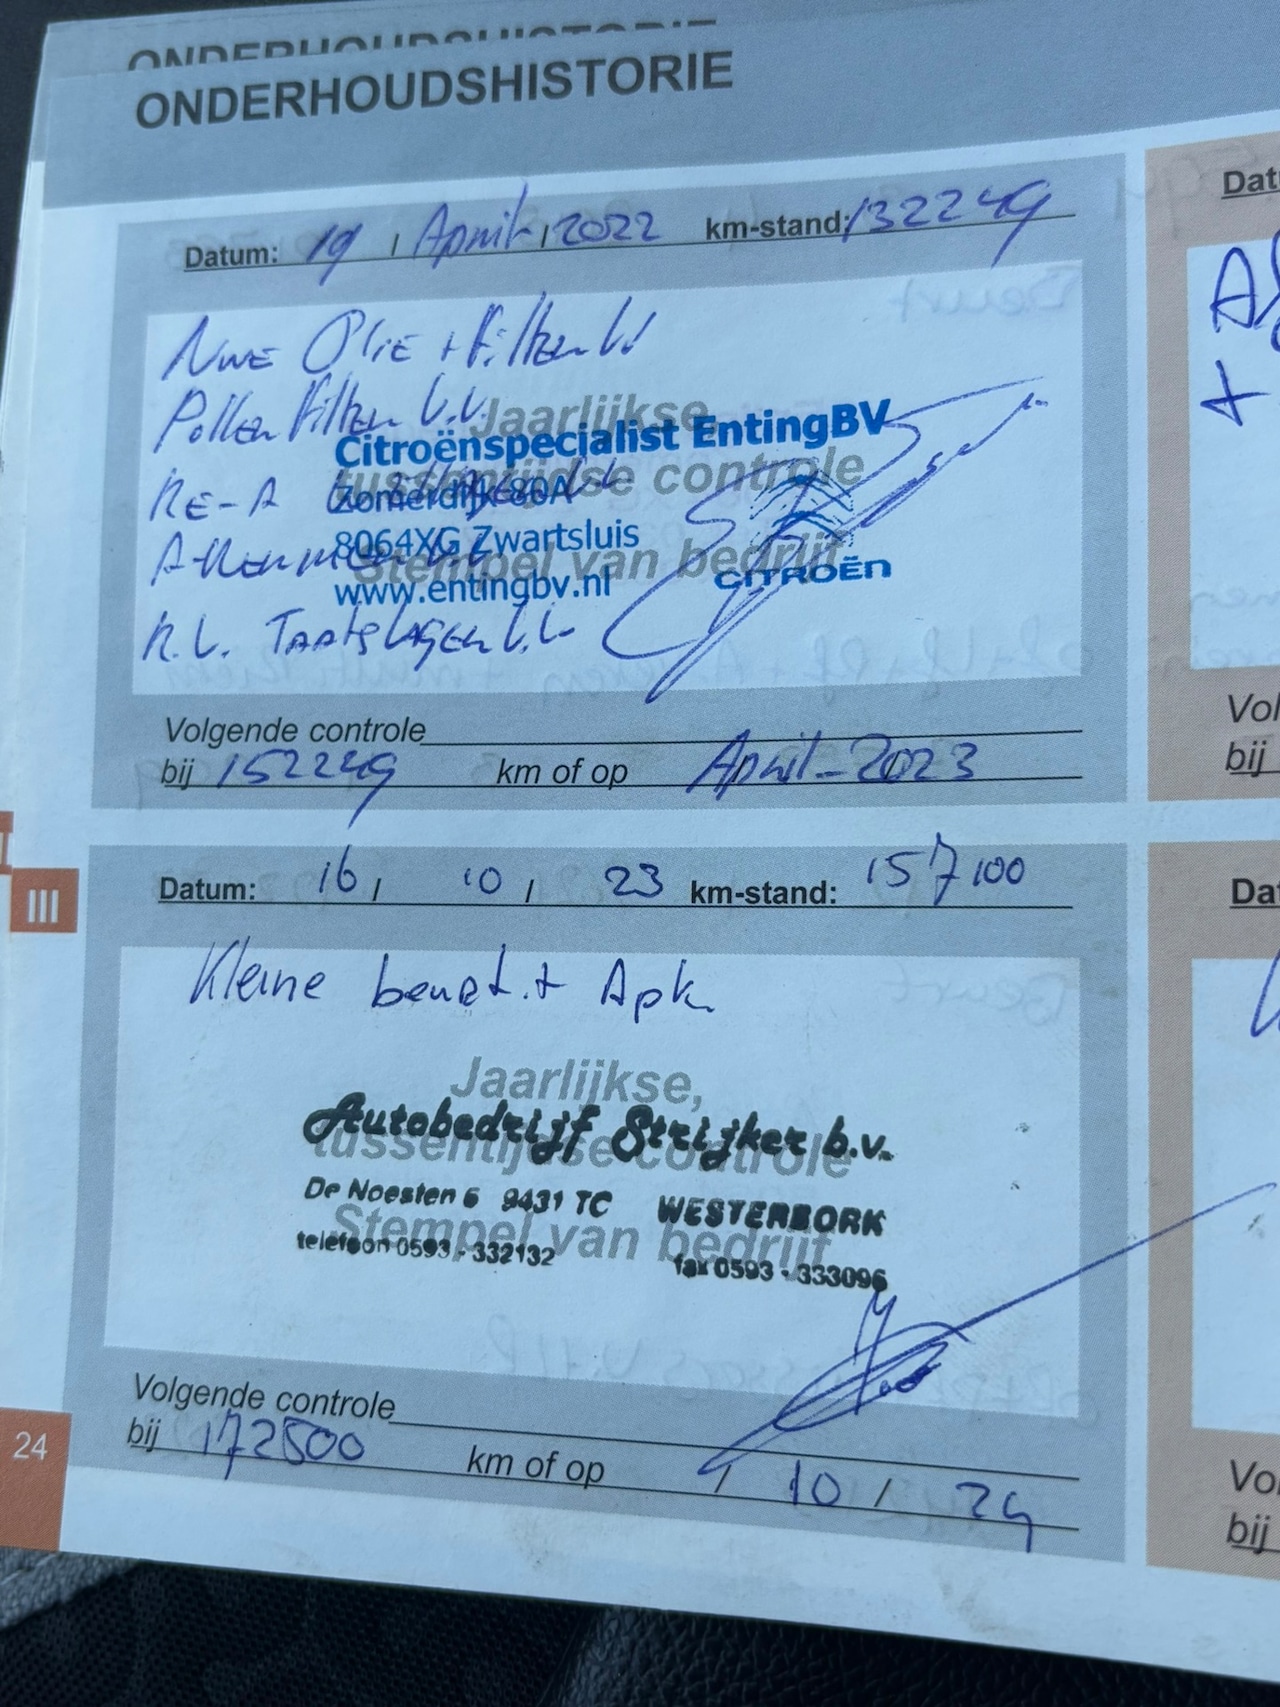 ONDERHOUDSHISTORIE
ONDERHOUDSHISTORIE
Datum: 19 / April / 2022 km-stand: 132249
Nwe Olie + Filter V.V
Pollen Filter V.V.
Jaarlijkse,
Citroënspecialist EntingBV
tussentijdse controle
RE-A
Zomerdijk 80A
8064XG Zwartsluis
Stempel van bedrijf
www.entingbv.nl
CITROËN
R.V. Taatslager V.V
Volgende controle
bij 152249 km of op April-2023
III
Datum: 16 / 10 / 23 km-stand: 157100
Kleine beurt + Apk
Jaarlijkse,
Autobedrijf Strijker b.v.
tussentijdse controle
De Noesten 6 9431 TC WESTERBORK
Stempel van bedrijf
telefoon 0593 - 332132 fax 0593 - 333096
Volgende controle
bij 172500 km of op / 10 / 24
24
Dat
+
Vol
bij
Dat
Vol
bij